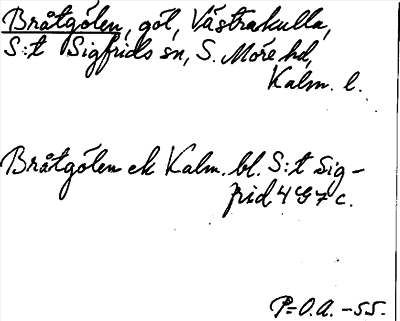 Bråtgölen, göl, Västrakulla,
S:t Sigfrids sn, S. Möre hd,
Kalm. l.
Bråtgölen ek Kalm. bl. S:t Sig-
frid 4 G 7 c.
P=O.A. -55.